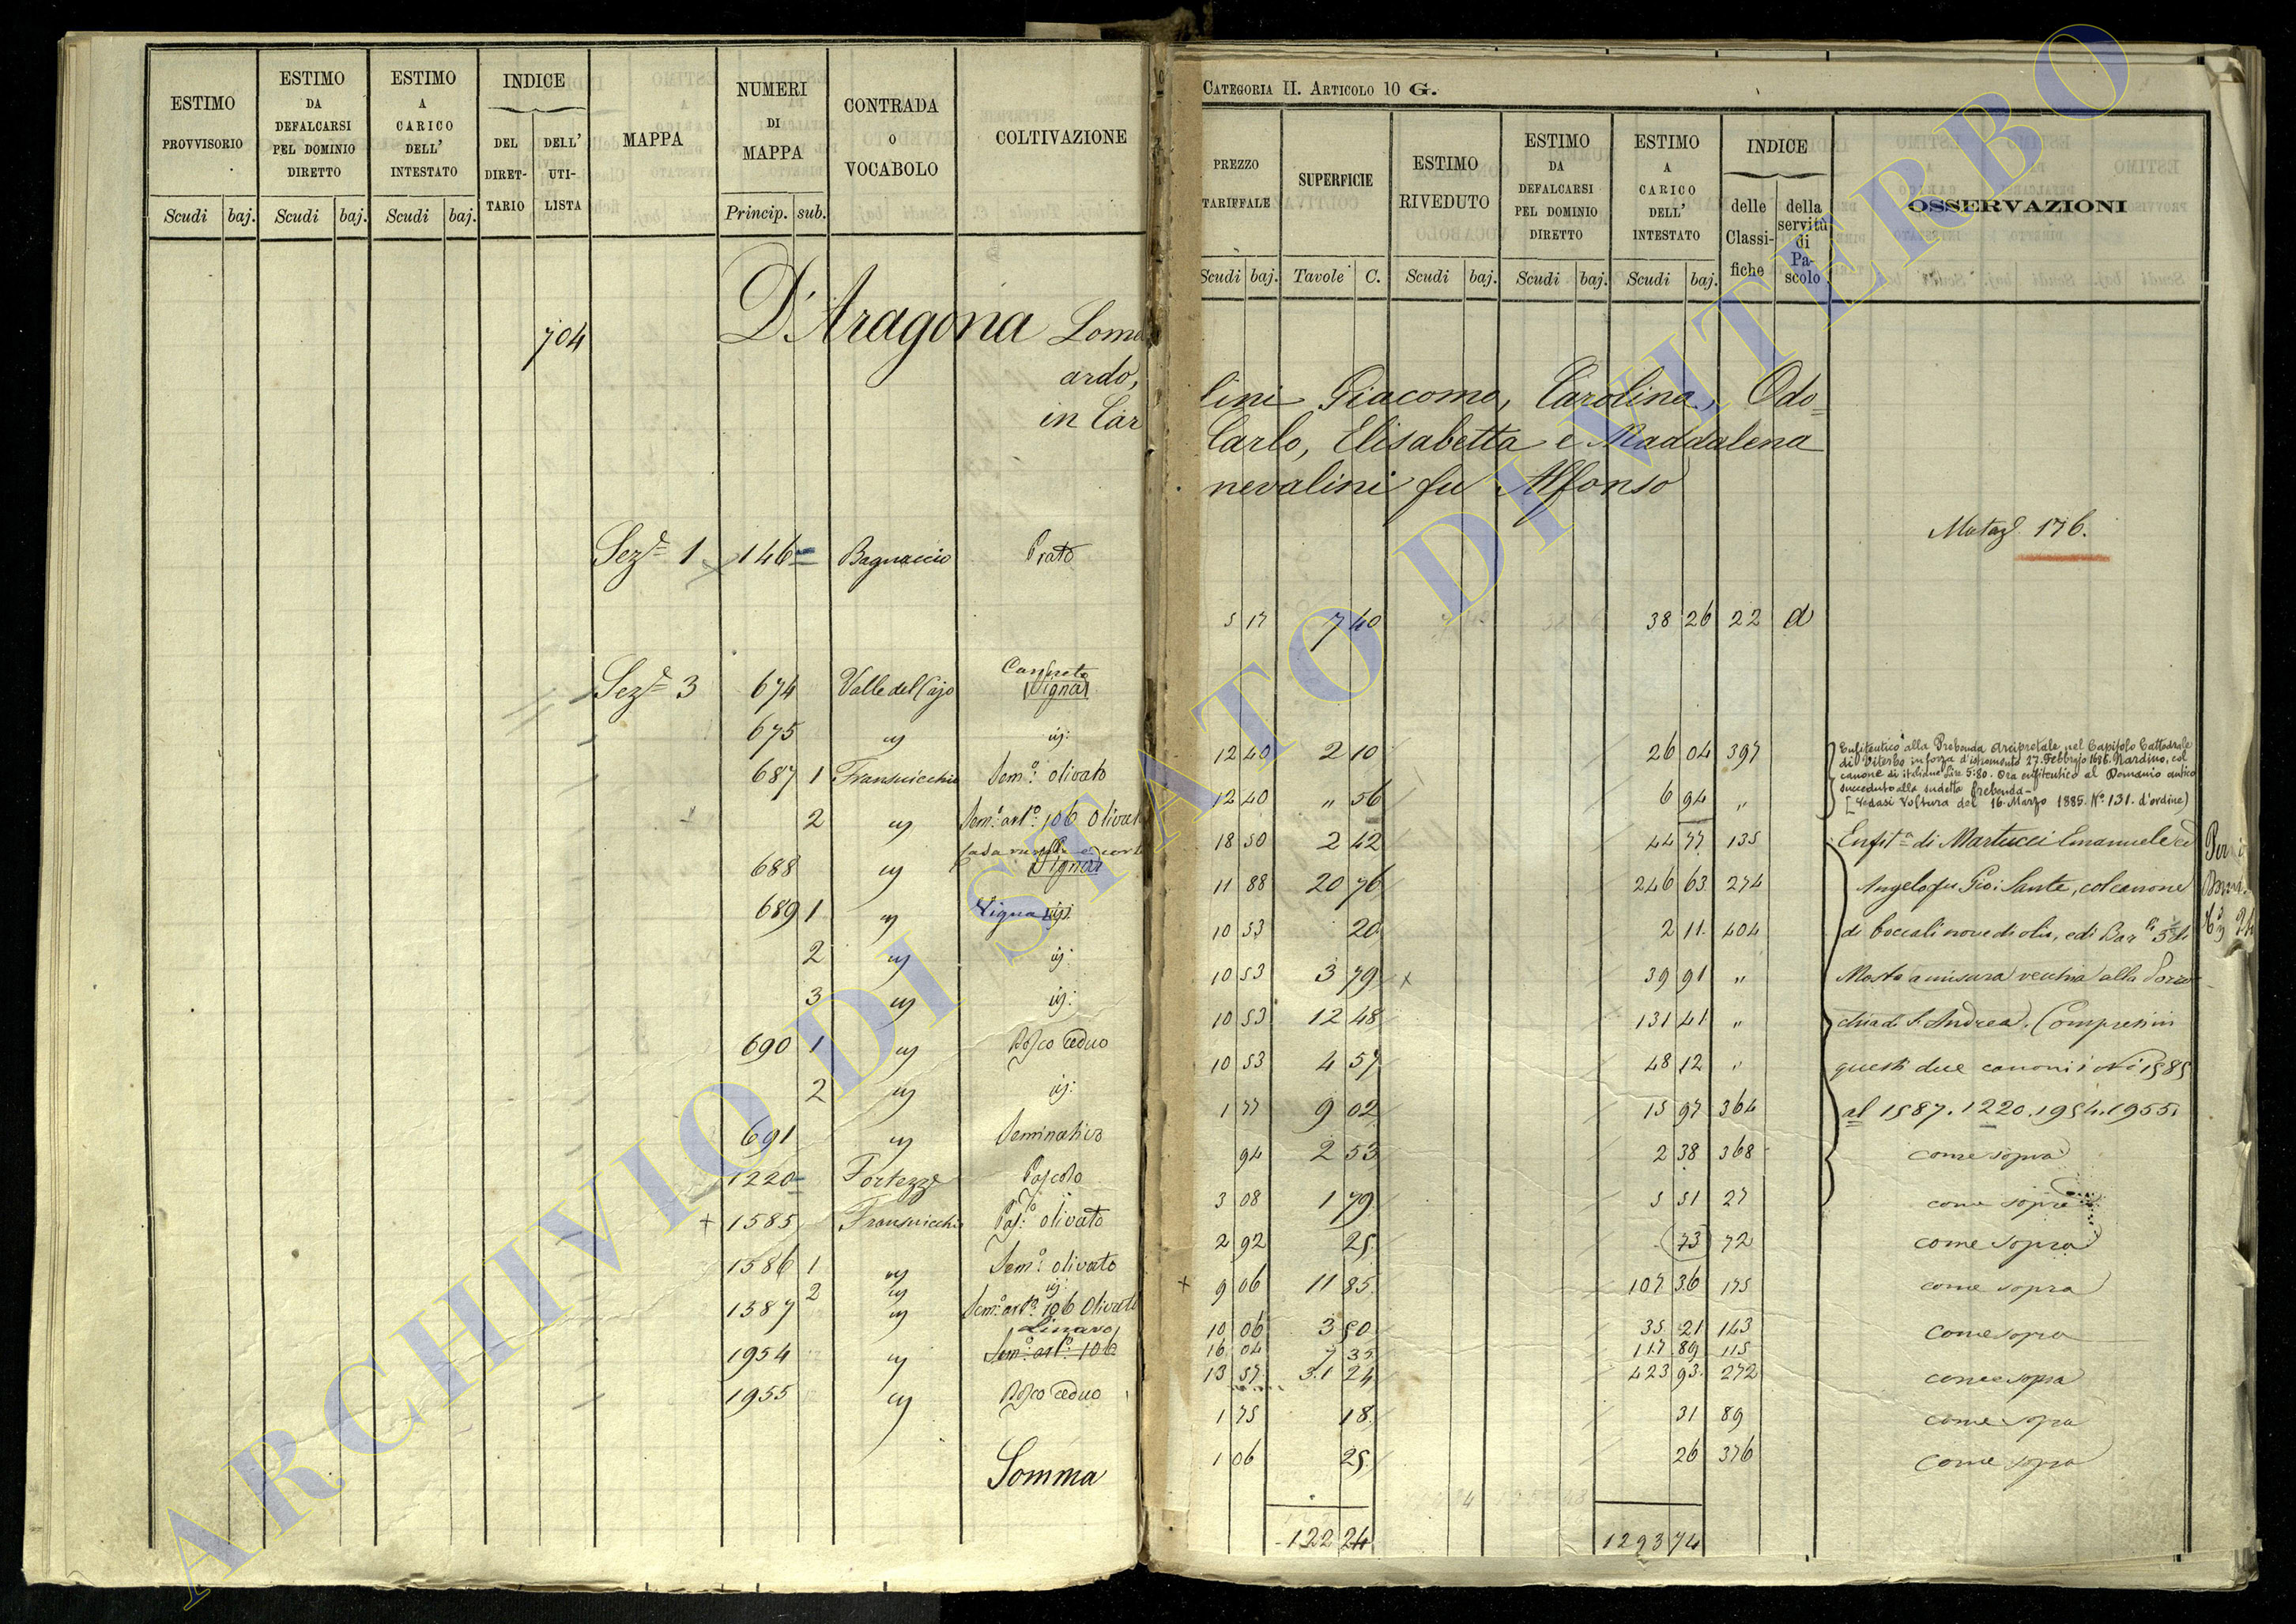 ESTIMO PROVVISORIO
Scudi baj.
ESTIMO DA DEFALCARSI PEL DOMINIO DIRETTO
Scudi baj.
ESTIMO A CARICO DELL' INTESTATO
Scudi baj.
INDICE
DEL DIRETTARIO
DELL' UTILISTA
MAPPA
NUMERI DI MAPPA
Princip. sub.
CONTRADA O VOCABOLO
COLTIVAZIONE
704 D'Aragona
ardo,
in Car
Sez.e 1 146 Bagnaccio Prato
Canneto
Sez.e 3 674 Valle del Cajo Vigna
675 " id:
687 1 Sem.o olivato
2 " Sem.o art.o 106 Olivat
688 " Vigna
689 1 " Vigna id:
2 " id:
3 " id:
690 1 " Bosco ceduo
2 " id:
691 " Seminativo
1220 Fortezze Pascolo
+ 1585 Pas.o olivato
1586 1 " Sem.o olivato
2 " id:
1587 " Sem.o art.o 106 Olivato
1954 " Sem.o art.o 106
1955 " Bosco ceduo
Somma
CATEGORIA II. ARTICOLO 10 G.
PREZZO TARIFFALE
Scudi baj.
SUPERFICIE
Tavole C.
ESTIMO RIVEDUTO
Scudi baj.
ESTIMO DA DEFALCARSI PEL DOMINIO DIRETTO
Scudi baj.
ESTIMO A CARICO DELL' INTESTATO
Scudi baj.
INDICE
delle Classifiche
della servitù di Pascolo
OSSERVAZIONI
lini Giacomo, Carolina, Odo=
Carlo, Elisabetta e Maddalena
nevalini fu Alfonso
176.
5 17 7 40 38 26 22 d
Enfiteutico alla Prebenda Arcipretale nel Capitolo Cattedrale
di Viterbo in forza d'istromento 27. Febbrajo 1686. Nardino, col
canone di italiane Lire 5:80. Ora enfiteutico al Demanio antico
succeduto alla sudetta Prebenda
[Vedasi Voltura del 16. Marzo 1885. N.o 131. d'ordine)
12 40 2 10 26 04 397
12 40 " 56 6 94 "
18 50 2 42 44 77 135 Enfit.a di Martucci Emanuele ed
11 88 20 76 246 63 274 Angelo fu Gio: Sante, col canone
10 53 20 2 11 404 di boccali nove di olio, e di Bar.li 5
10 53 3 79 39 91 " Mosto a misura vecchia alla Parro
10 53 12 48 131 41 " chia di S. Andrea. Compresi in
10 53 4 57 48 12 " questi due canoni i N.i 1585
1 77 9 02 15 97 364 al 1587. 1220. 1954. 1955.
94 2 53 2 38 368 come sopra
3 08 1 79 5 51 27 come sopra
2 92 25 (73) 72 come sopra
+ 9 06 11 85 107 36 175 come sopra
10 06 3 50 35 21 143 come sopra
16 04 7 35 117 89 115
13 57 31 24 423 93 272 come sopra
1 75 18 31 89 come sopra
1 06 25 26 376 come sopra
122 24 1293 74
ARCHIVIO DI STATO DI VITERBO